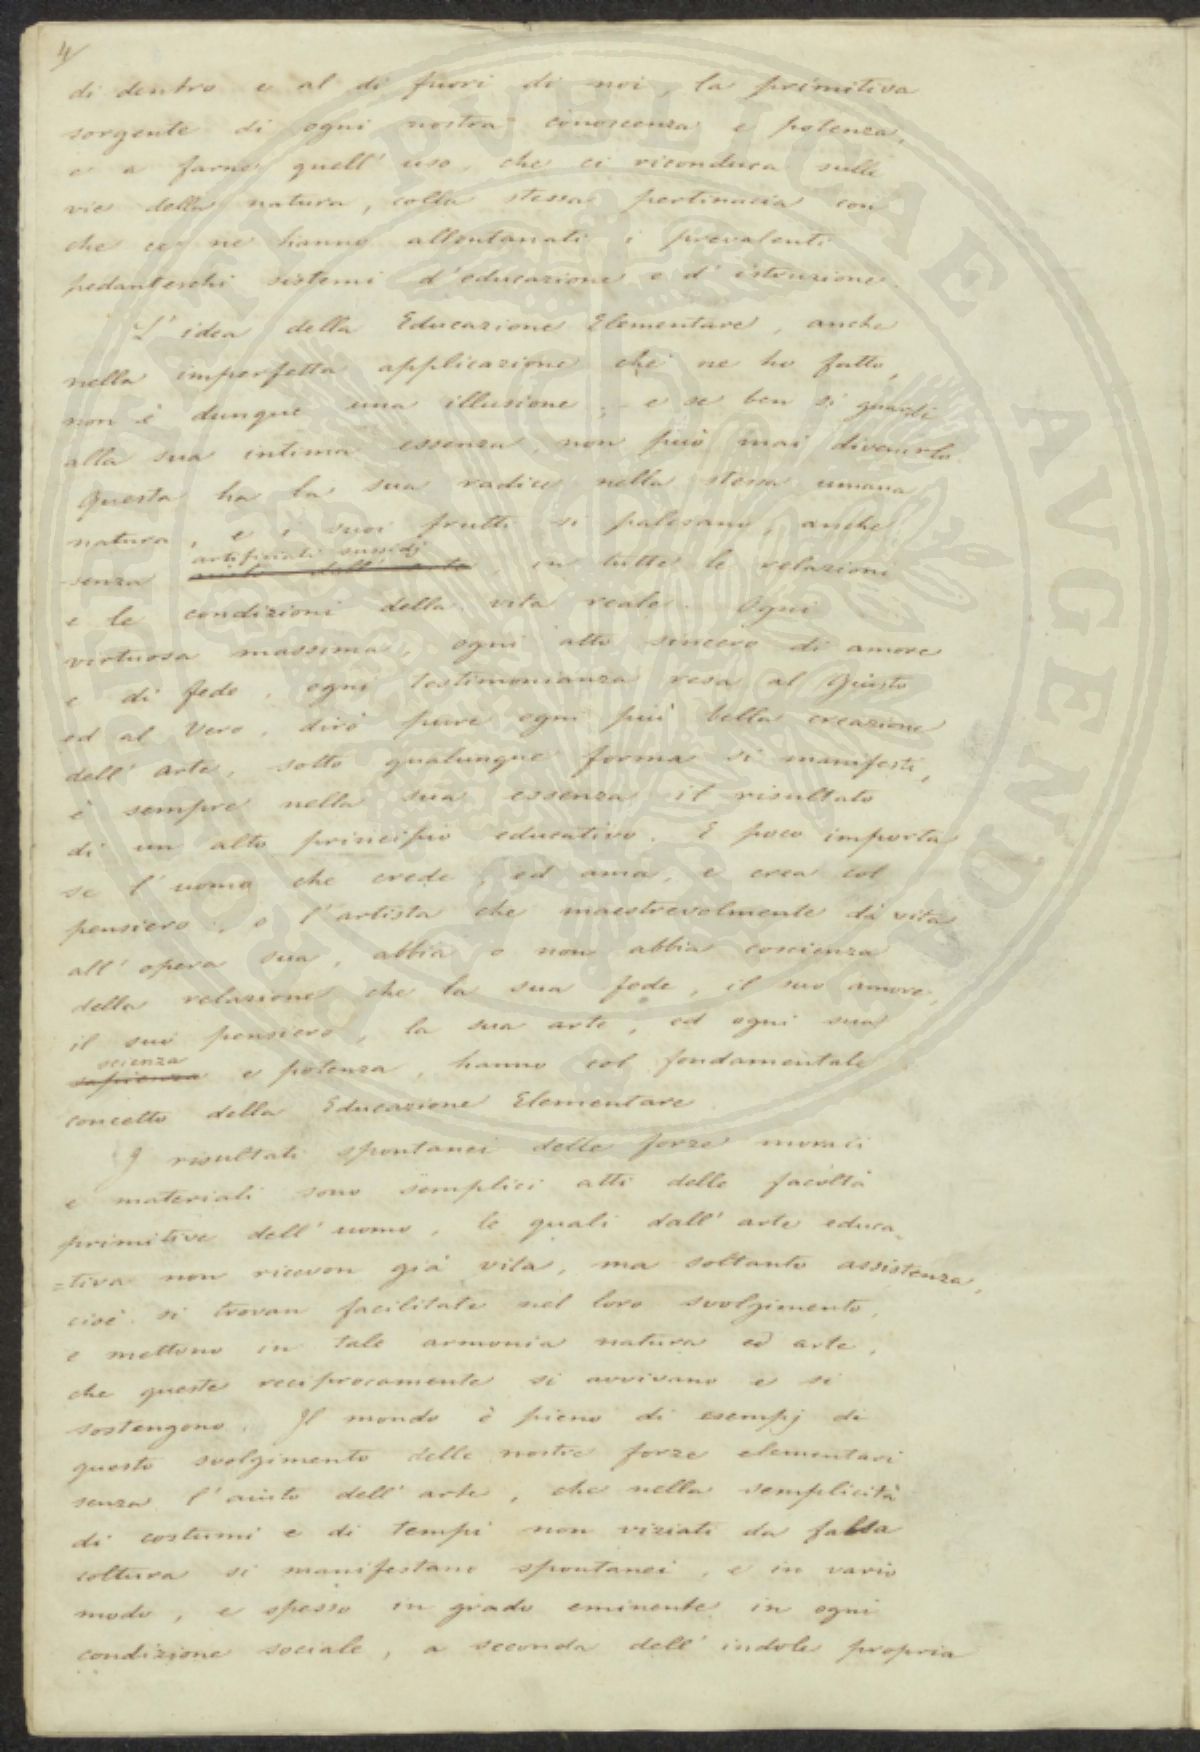 4
di dentro e al di fuori di noi, la primitiva
sorgente di ogni nostra conoscenza e potenza,
e a farne quell' uso, che ci riconduca sulle
vie della natura, colla stessa pertinacia con
che ce ne hanno allontanati i prevalenti
pedanteschi sistemi d' educazione e d' istruzione.
L' idea della Educazione Elementare, anche
nella imperfetta applicazione che ne ho fatto,
non è dunque una illusione; e se ben si guardi
alla sua intima essenza, non può mai divenirlo.
Questa ha la sua radice nella stessa umana
natura, e i suoi frutti si palesano, anche
artificiati sussidj
senza aiuto dell' arte, in tutte le relazioni
e le condizioni della vita reale. Ogni
virtuosa massima, ogni atto sincero di amore
e di fede, ogni testimonianza resa al Giusto
ed al Vero, dirò pure ogni più bella creazione
dell' arte, sotto qualunque forma si manifesti,
è sempre nella sua essenza il risultato
di un alto principio educativo. E poco importa
se l' uomo che crede, ed ama, e crea col
pensiero, o l' artista che maestrevolmente dà vita
all' opera sua, abbia o non abbia coscienza
della relazione che la sua fede, il suo amore,
il suo pensiero, la sua arte, ed ogni sua
scienza
sapienza e potenza, hanno col fondamentale
concetto della Educazione Elementare.
I risultati spontanei delle forze morali
e materiali sono semplici atti delle facoltà
primitive dell' uomo, le quali dall' arte educa-
=tiva non ricevon già vita, ma soltanto assistenza,
cioè si trovan facilitate nel loro svolgimento,
e mettono in tale armonia natura ed arte,
che queste reciprocamente si avvivano e si
sostengono. Il mondo è pieno di esempj di
questo svolgimento delle nostre forze elementari
senza l' aiuto dell' arte, che nella semplicità
di costumi e di tempi non viziati da falsa
coltura si manifestano spontanei, e in vario
modo, e spesso in grado eminente in ogni
condizione sociale, a seconda dell' indole propria
PUBLICAE
AVGENDO